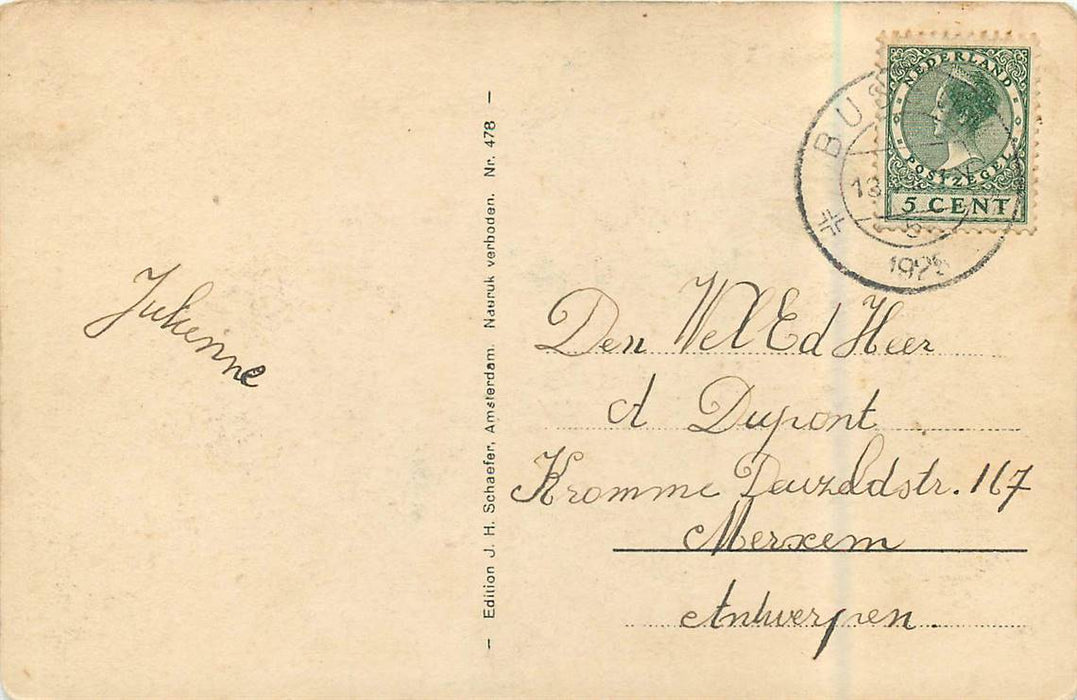 Julienne
– Edition J. H. Schaefer, Amsterdam. Nadruk verboden. Nr. 478 –
NEDERLAND
POSTZEGEL
5 CENT
BUS
13
192
Den Wel Ed Heer
A Dupont
Kromme Deuzeldstr. 167
Merxem
Antwerpen.